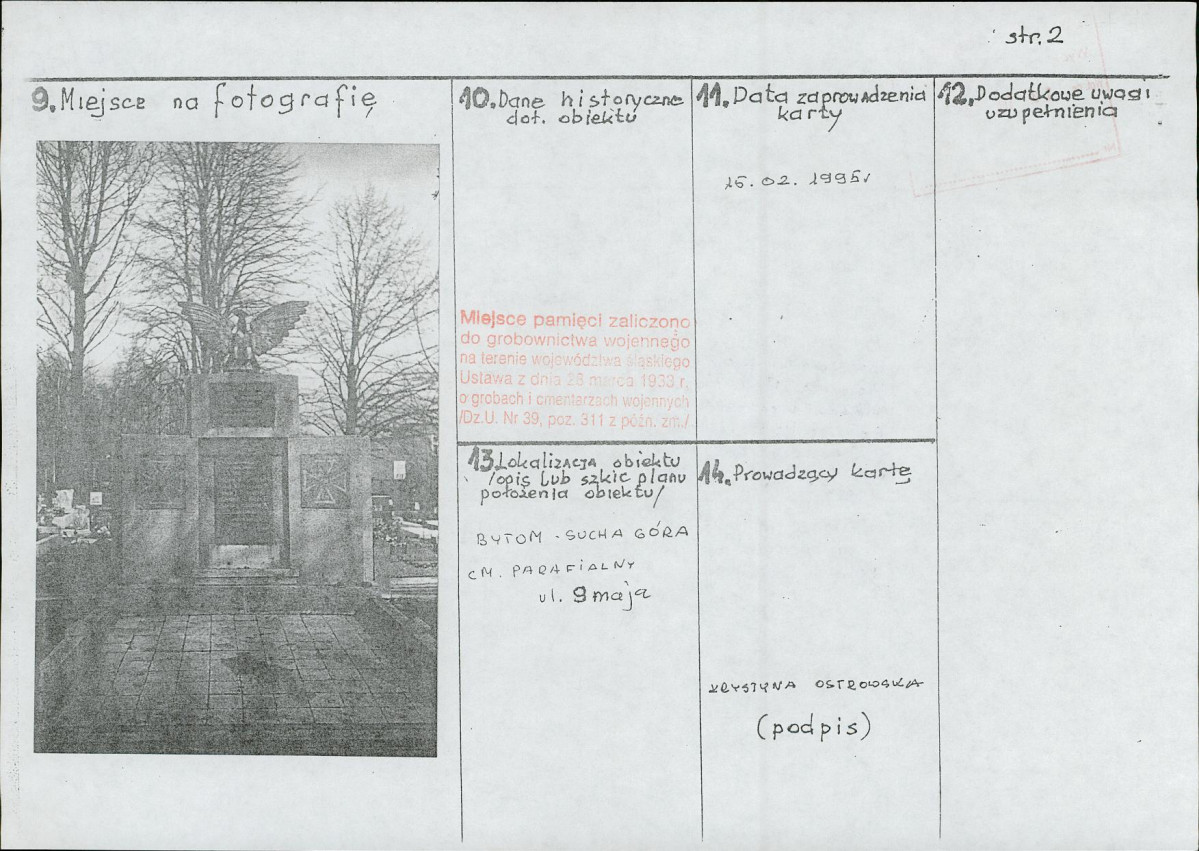 str. 2
9. Miejsce na fotografię
10. Dane historyczne
dot. obiektu
Miejsce pamięci zaliczono
do grobownictwa wojennego
na terenie województwa śląskiego
Ustawa z dnia 28 marca 1933 r.
o grobach i cmentarzach wojennych
/Dz.U. Nr 39, poz. 311 z późn. zm./
11. Data zaprowadzenia
karty
15. 02. 1995r
12. Dodatkowe uwagi
uzupełnienia
13. Lokalizacja obiektu
/opis lub szkic planu
położenia obiektu/
BYTOM - SUCHA GÓRA
CM. PARAFIALNY
ul. 9 maja
14. Prowadzący kartę
KRYSTYNA OSTROWSKA
(podpis)